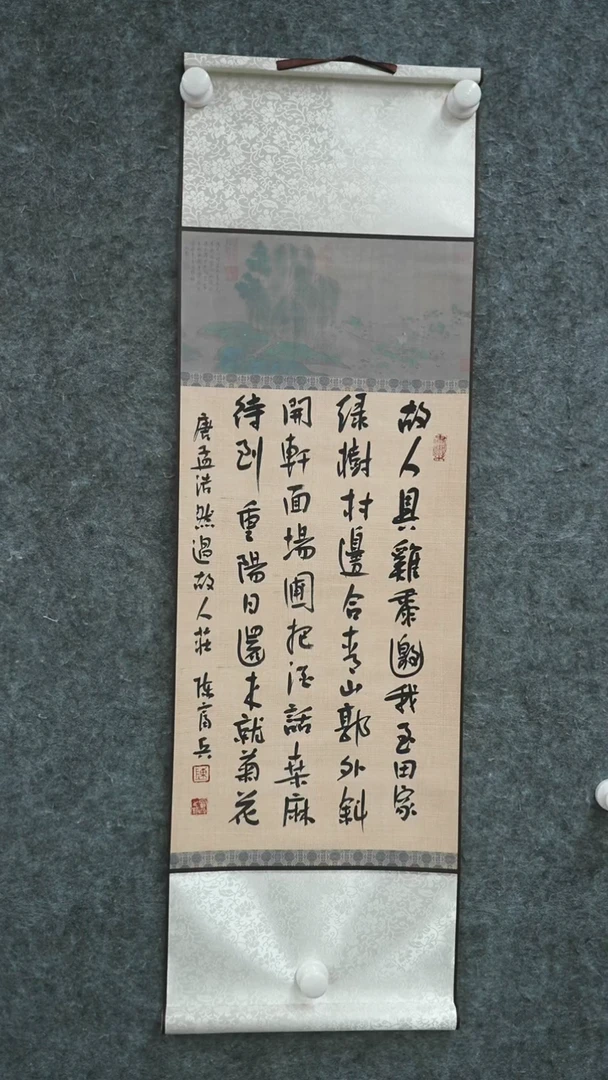 故人具雞黍邀我至田家
绿樹村邊合青山郭外斜
開軒面場圃把酒話桑麻
待到重陽日還来就菊花
唐孟浩然過故人莊 陈富兵